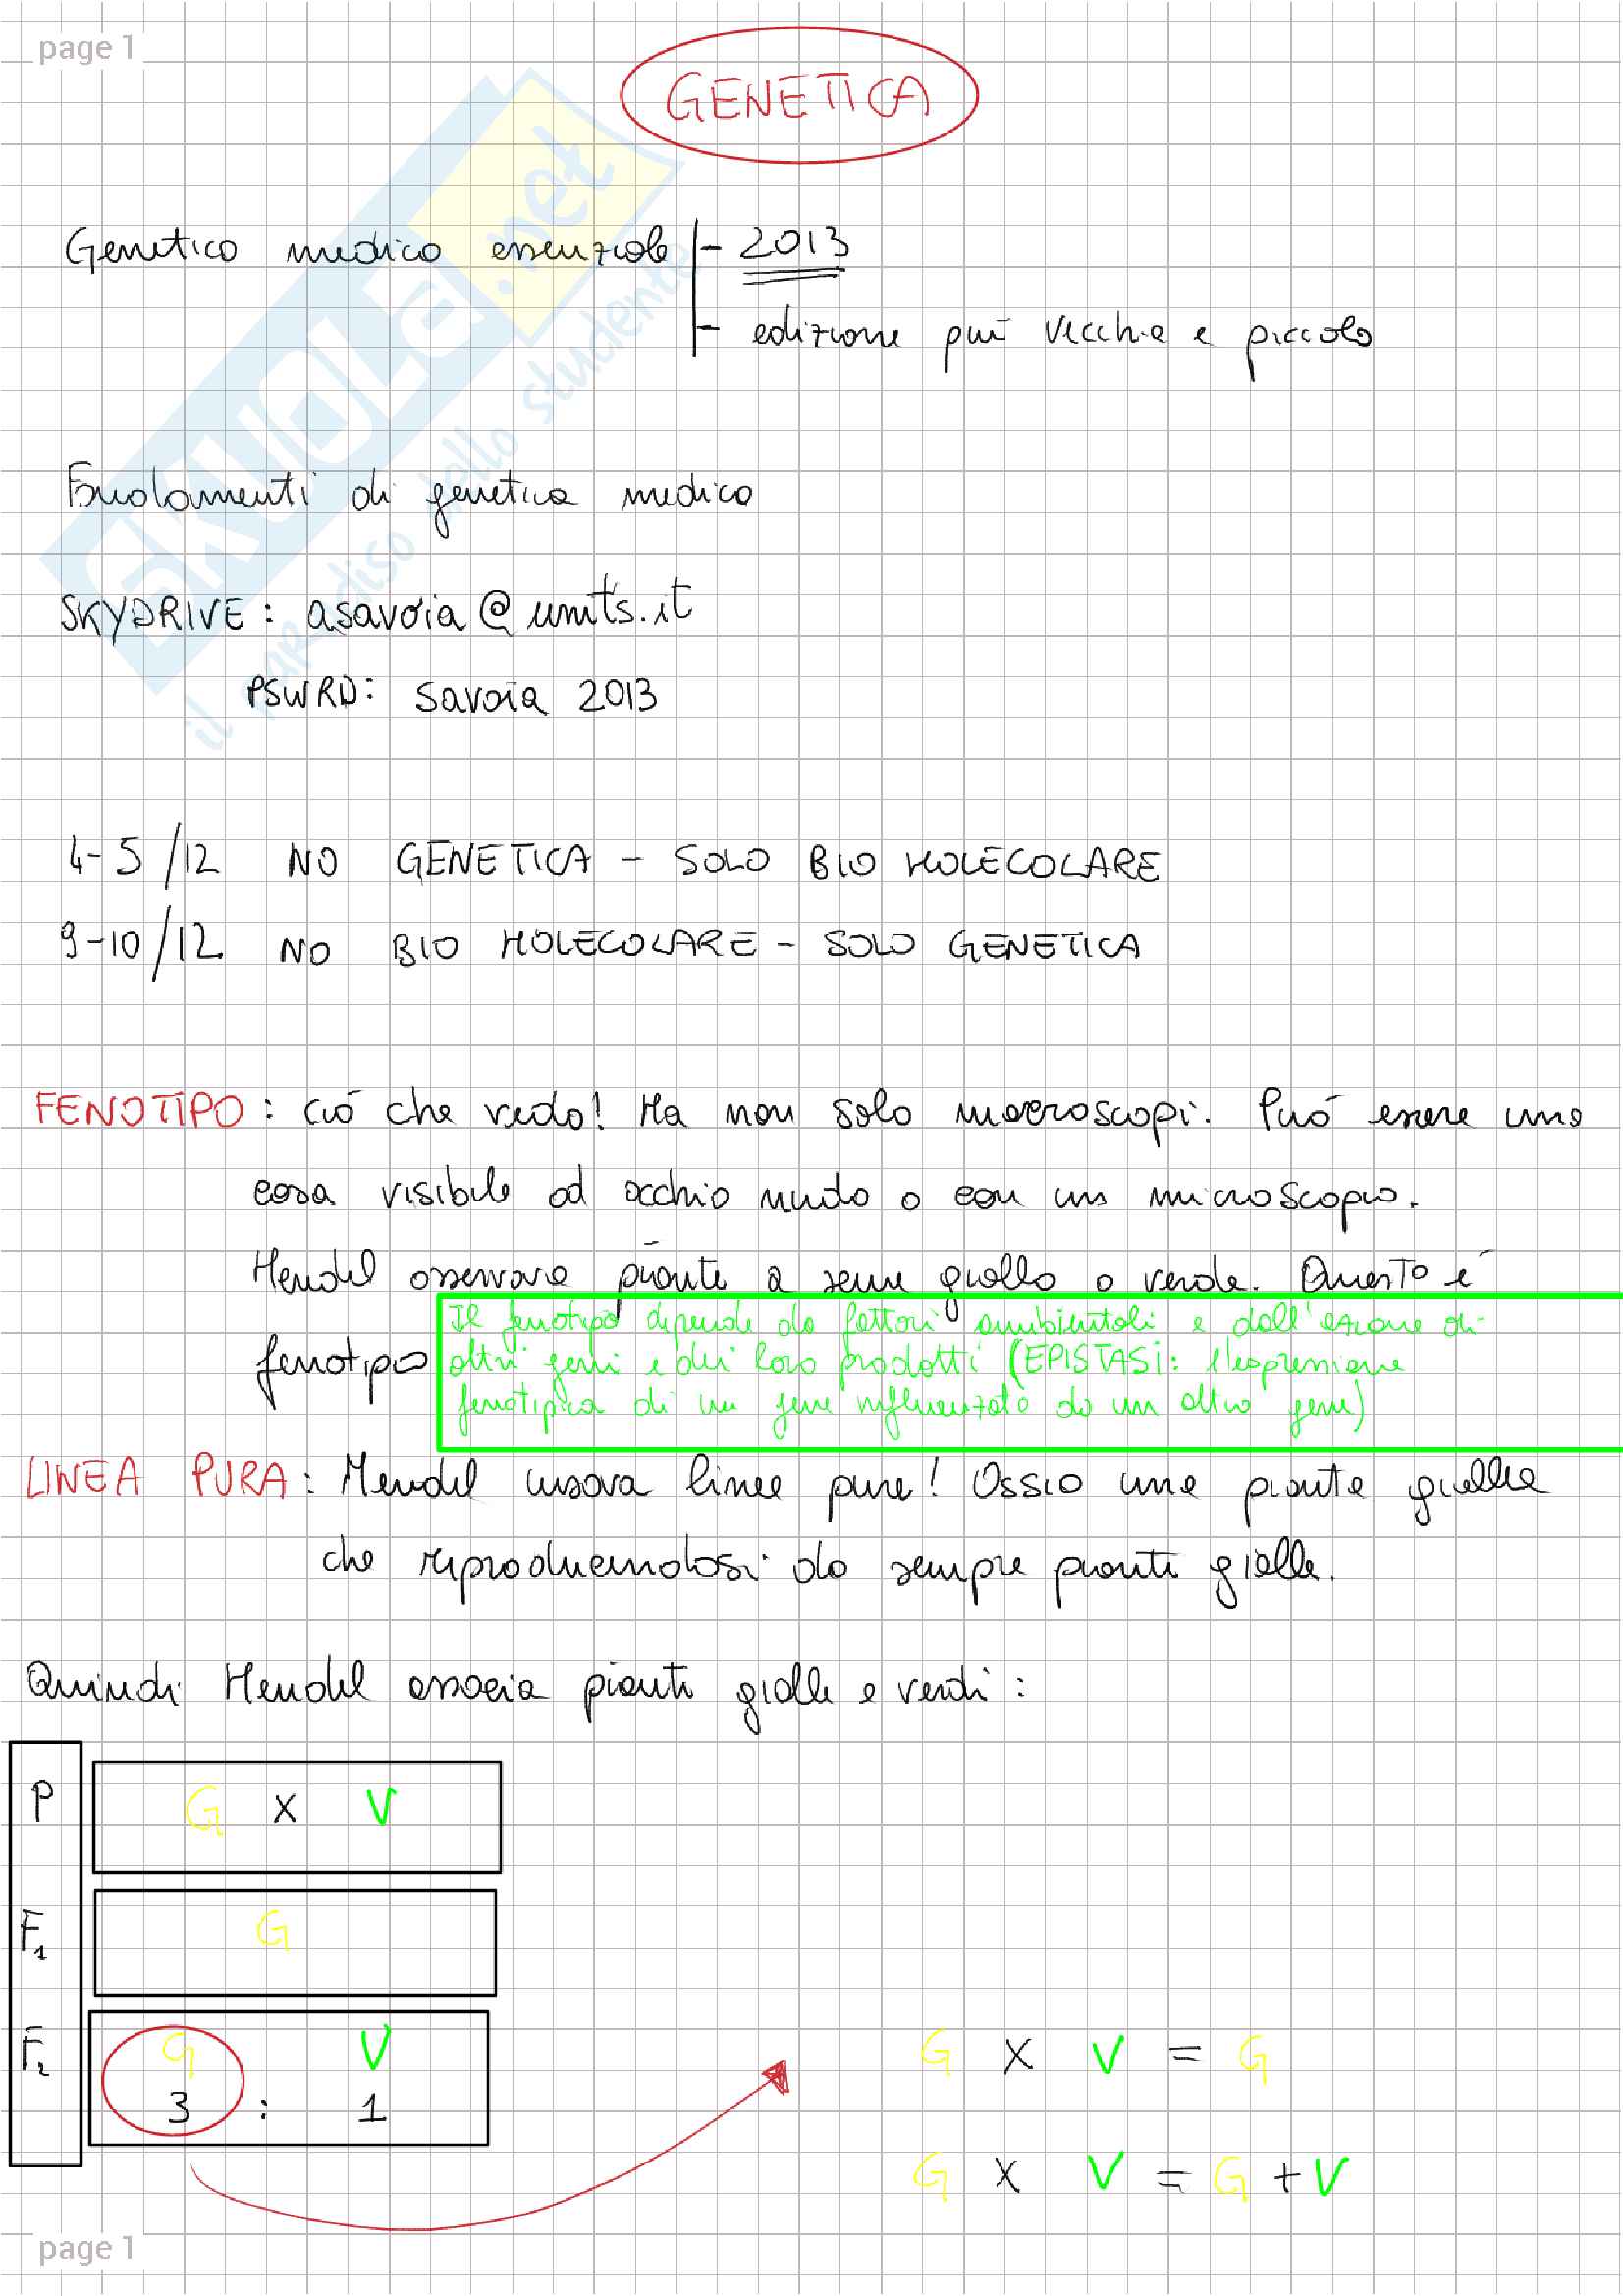 page 1
GENETICA
SKUOLA.net
il paradiso dello studente
Genetica medica essenziale - 2013
- edizione più vecchia e piccola
Fondamenti di genetica medica
SKYDRIVE: asavoia@units.it
PSWRD: savoia 2013
4-5/12 NO GENETICA - SOLO BIO MOLECOLARE
9-10/12 NO BIO MOLECOLARE - SOLO GENETICA
FENOTIPO: ciò che vedo! Ma non solo macroscopi. Può essere una
cosa visibile ad occhio nudo o con un microscopio.
Mendel osservava piante a seme giallo o verde. Questo è
fenotipo
Il fenotipo dipende da fattori ambientali e dall'azione di
altri geni e dei loro prodotti (EPISTASI: l'espressione
fenotipica di un gene influenzata da un altro gene)
LINEA PURA: Mendel usava linee pure! Ossia una pianta gialla
che riproducendosi da sempre piante gialle.
Quindi Mendel associa piante gialle e verdi:
P G x V
F1 G
F2 G V
3 : 1
G x V = G
G x V = G + V
page 1